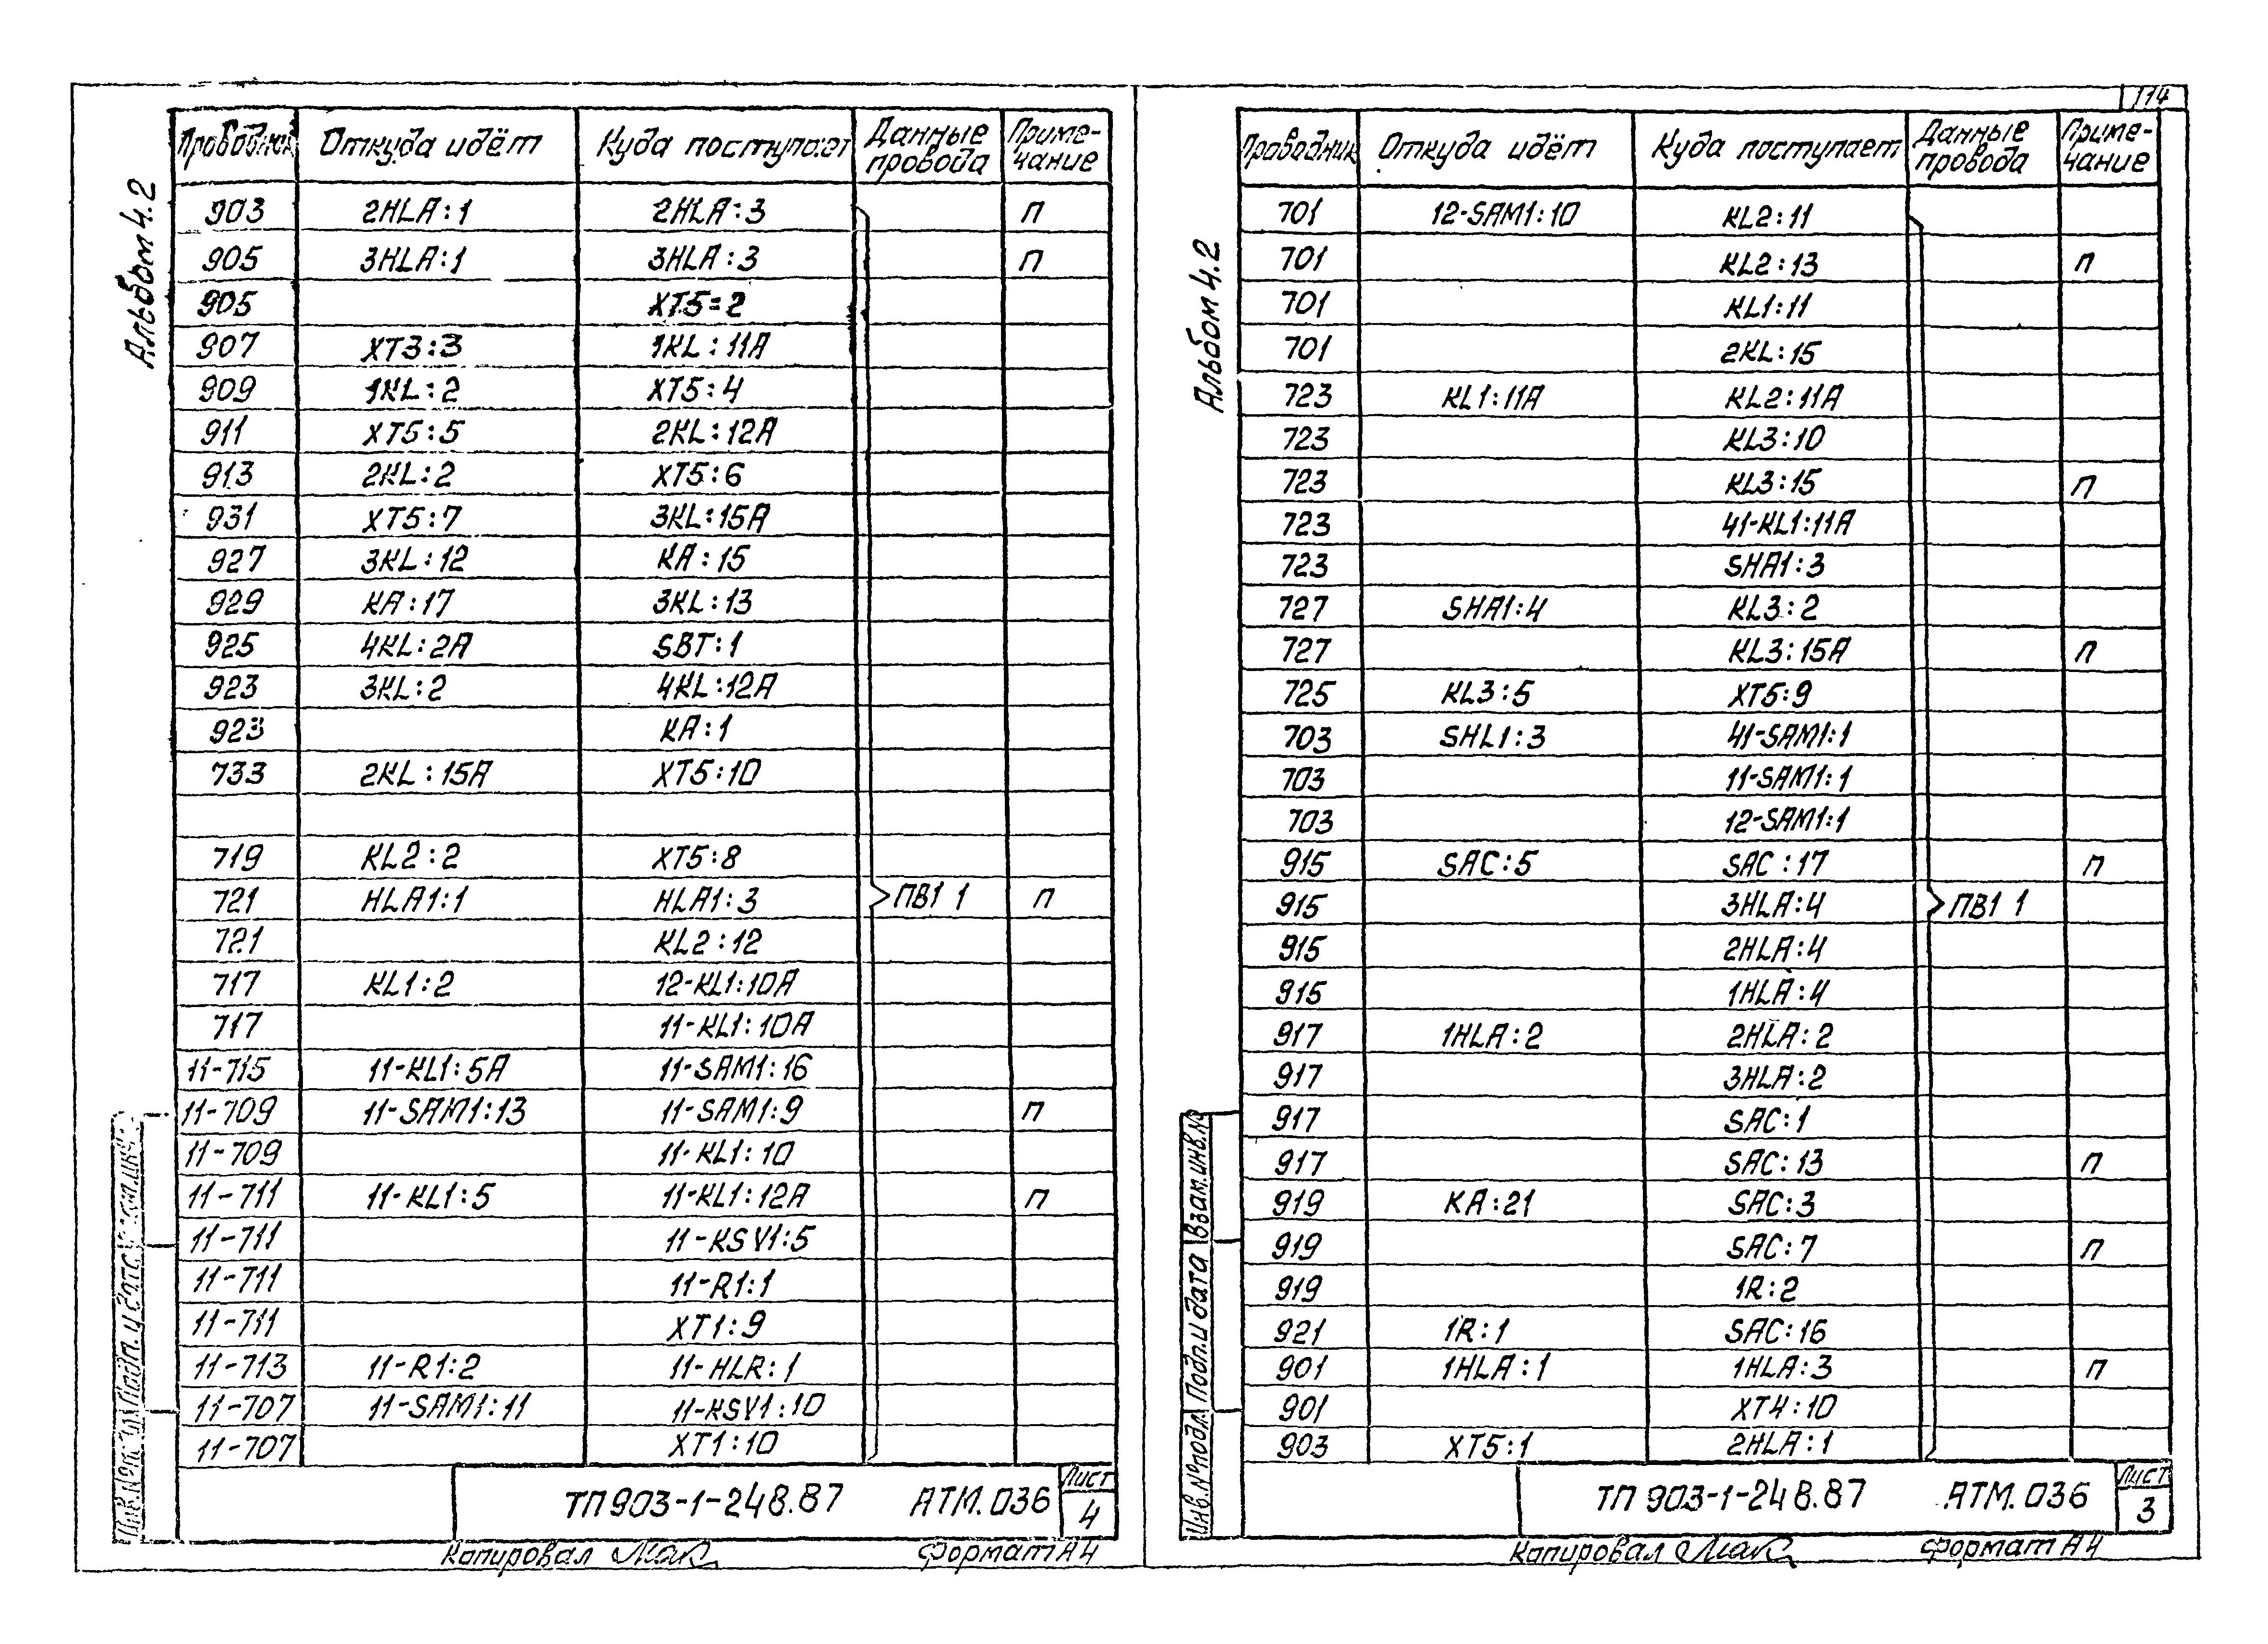 114
Альбом 4.2
Проводник Откуда идёт Куда поступает Данные провода Приме-чание
903 2HLA:1 2HLA:3 П
905 3HLA:1 3HLA:3 П
905 XT5=2
907 XT3:3 1KL:11A
909 1KL:2 XT5:4
911 XT5:5 2KL:12A
913 2KL:2 XT5:6
931 XT5:7 3KL:15A
927 3KL:12 KA:15
929 KA:17 3KL:13
925 4KL:2A SBT:1
923 3KL:2 4KL:12A
923 KA:1
733 2KL:15A XT5:10
719 KL2:2 XT5:8
721 HLA1:1 HLA1:3 ПВ1 1 П
721 KL2:12
717 KL1:2 12-KL1:10A
717 11-KL1:10A
11-715 11-KL1:5A 11-SAM1:16
11-709 11-SAM1:13 11-SAM1:9 П
11-709 11-KL1:10
11-711 11-KL1:5 11-KL1:12A П
11-711 11-KSV1:5
11-711 11-R1:1
11-711 XT1:9
11-713 11-R1:2 11-HLR:1
11-707 11-SAM1:11 11-KSV1:10
11-707 XT1:10
ТП 903-1-248.87 АТМ.036 Лист 4
Копировал Формат А4
Альбом 4.2
Проводник Откуда идёт Куда поступает Данные провода Приме-чание
701 12-SAM1:10 KL2:11
701 KL2:13 П
701 KL1:11
701 2KL:15
723 KL1:11A KL2:11A
723 KL3:10
723 KL3:15 П
723 41-KL1:11A
723 SHA1:3
727 SHA1:4 KL3:2
727 KL3:15A П
725 KL3:5 XT5:9
703 SHL1:3 41-SAM1:1
703 11-SAM1:1
703 12-SAM1:1
915 SAC:5 SAC:17 П
915 3HLA:4 ПВ1 1
915 2HLA:4
915 1HLA:4
917 1HLA:2 2HLA:2
917 3HLA:2
917 SAC:1
917 SAC:13 П
919 KA:21 SAC:3
919 SAC:7 П
919 1R:2
921 1R:1 SAC:16
901 1HLA:1 1HLA:3 П
901 XT4:10
903 XT5:1 2HLA:1
Инв.№подл. Подп.и дата Взам.инв.№
ТП 903-1-248.87 АТМ.036 Лист 3
Копировал Формат А4